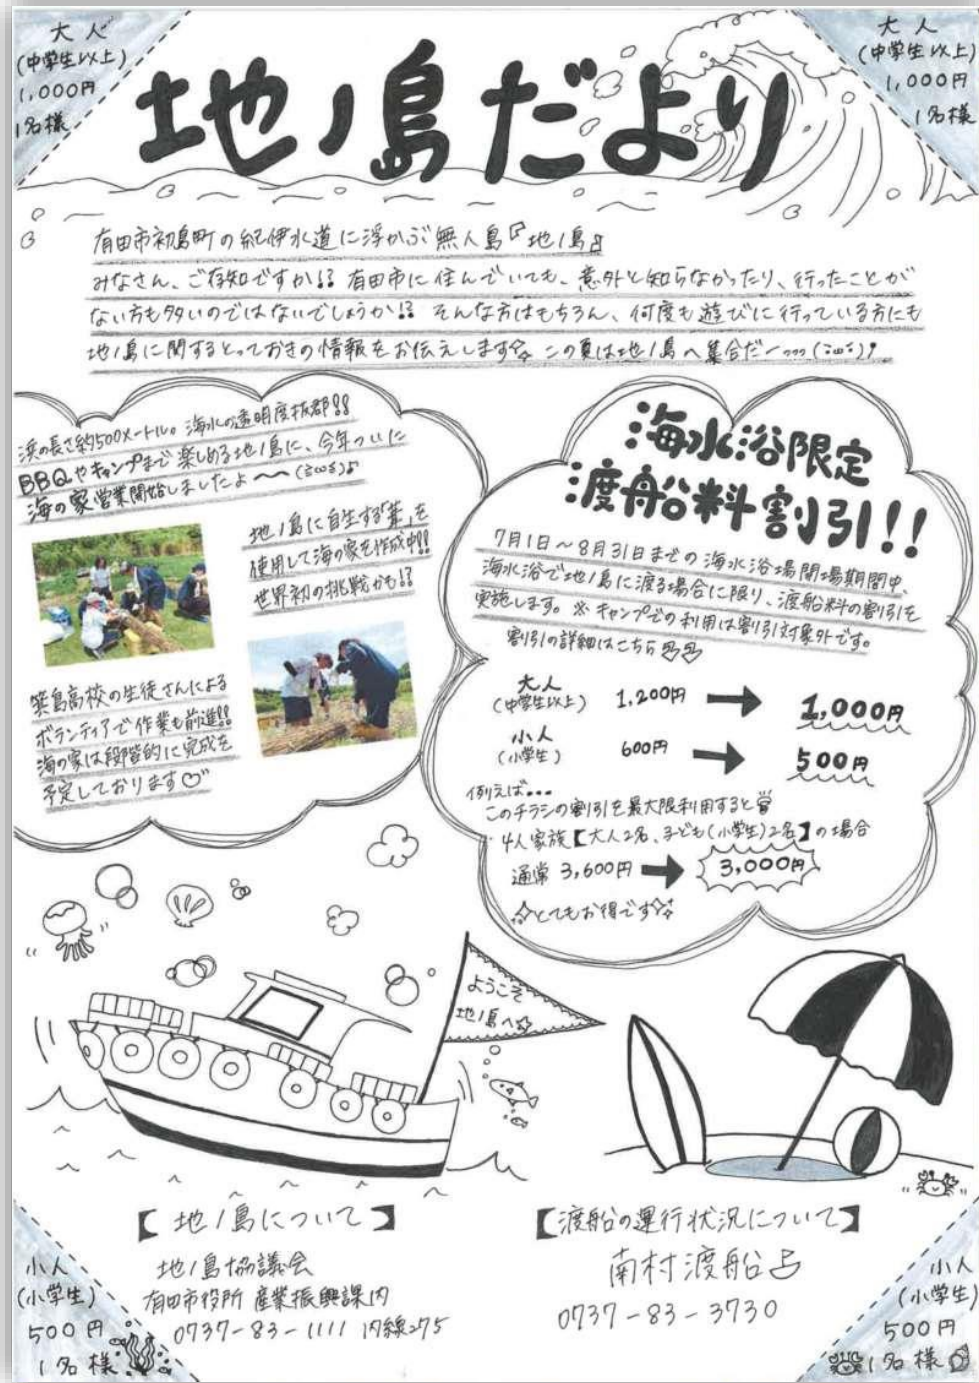 大人
(中学生以上)
1,000円
1名様
大人
(中学生以上)
1,000円
1名様
地ノ島だより
有田市初島町の紀伊水道に浮かぶ無人島『地ノ島』
みなさん、ご存知ですか!? 有田市に住んでいても、意外と知らなかったり、行ったことが
ない方も多いのではないでしょうか!? そんな方はもちろん、何度も遊びに行っている方にも
地ノ島に関するとっておきの情報をお伝えします☆ この夏は地ノ島へ集合だー
浜の長さ約500メートル。海水の透明度抜群!!
BBQやキャンプまで楽しめる地ノ島に、今年ついに
海の家営業開始しましたよ〜
地ノ島に自生する「葦」を
使用して海の家を作成中!!
世界初の挑戦かも!?
箕島高校の生徒さんによる
ボランティアで作業も前進!!
海の家は段階的に完成を
予定しております♡
海水浴限定
渡船料割引!!
7月1日〜8月31日までの海水浴場開場期間中、
海水浴で地ノ島に渡る場合に限り、渡船料の割引を
実施します。※キャンプでの利用は割引対象外です。
割引の詳細はこちら
大人
(中学生以上) 1,200円 → 1,000円
小人
(小学生) 600円 → 500円
例えば…
このチラシの割引を最大限利用すると
4人家族【大人2名、子ども(小学生)2名】の場合
通常 3,600円 → 3,000円
☆とてもお得です☆
ようこそ
地ノ島へ☆
【地ノ島について】
地ノ島協議会
有田市役所 産業振興課内
0737-83-1111 内線275
【渡船の運行状況について】
南村渡船占
0737-83-3730
小人
(小学生)
500円
1名様
小人
(小学生)
500円
1名様